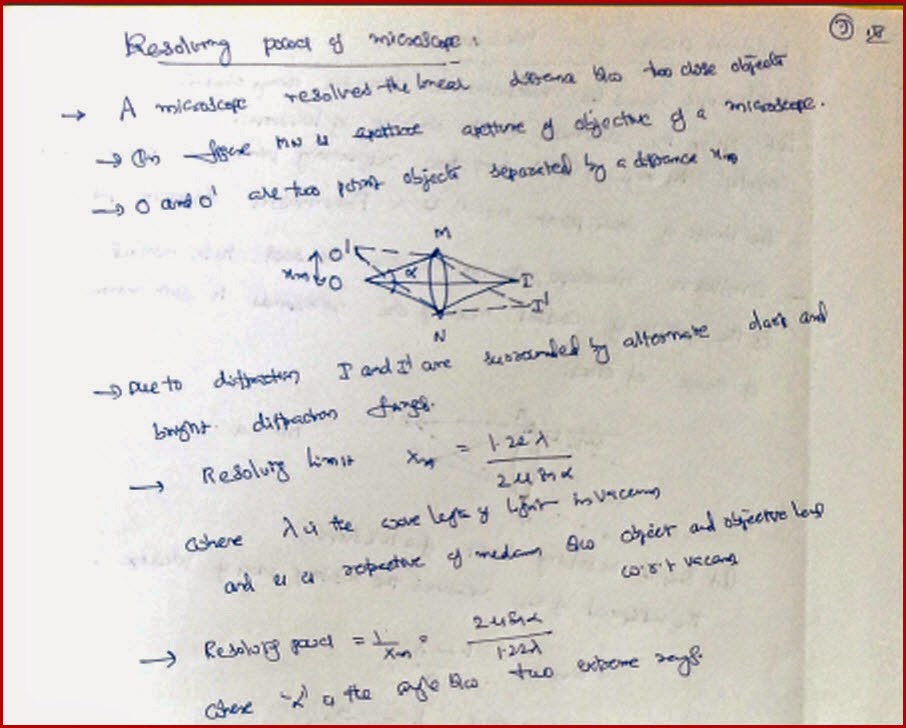 7 18
Resolving power of microscope :
→ A microscope resolves the linear distance b/w two close objects
→ In figure MN is apetture apetture of objective of a microscope.
→ O and O' are two point objects separated by a distance xm
M
O'
xm
O
α
I
I'
N
→ Due to diffraction I and I' are surrounded by alternate dark and
bright diffraction fringes.
→ Resolving limit xm = 1.22 λ / 2 μ Sin α
Where λ is the wave length of light in vaccum
and μ is refractive of medium b/w object and objective lens
w.r.t vacuum
→ Resolving power = 1/xm = 2 μ Sin α / 1.22 λ
Where 'α' is the angle b/w two extreme rays.